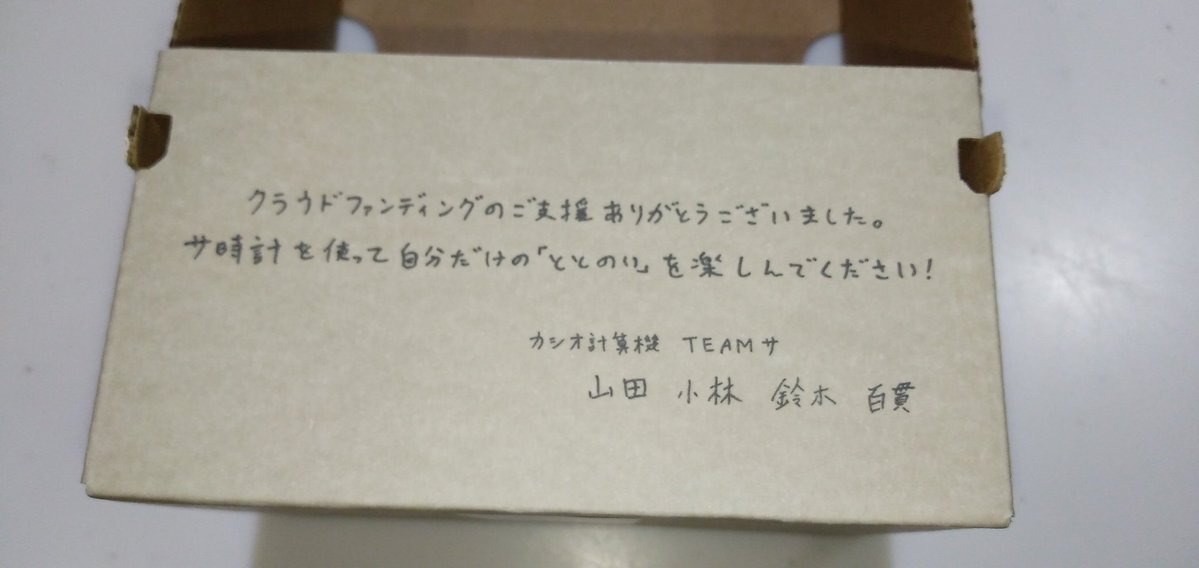 クラウドファンディングのご支援ありがとうございました。
サ時計を使って自分だけの「ととのい」を楽しんでください!
カシオ計算機 TEAMサ
山田 小林 鈴木 百貫